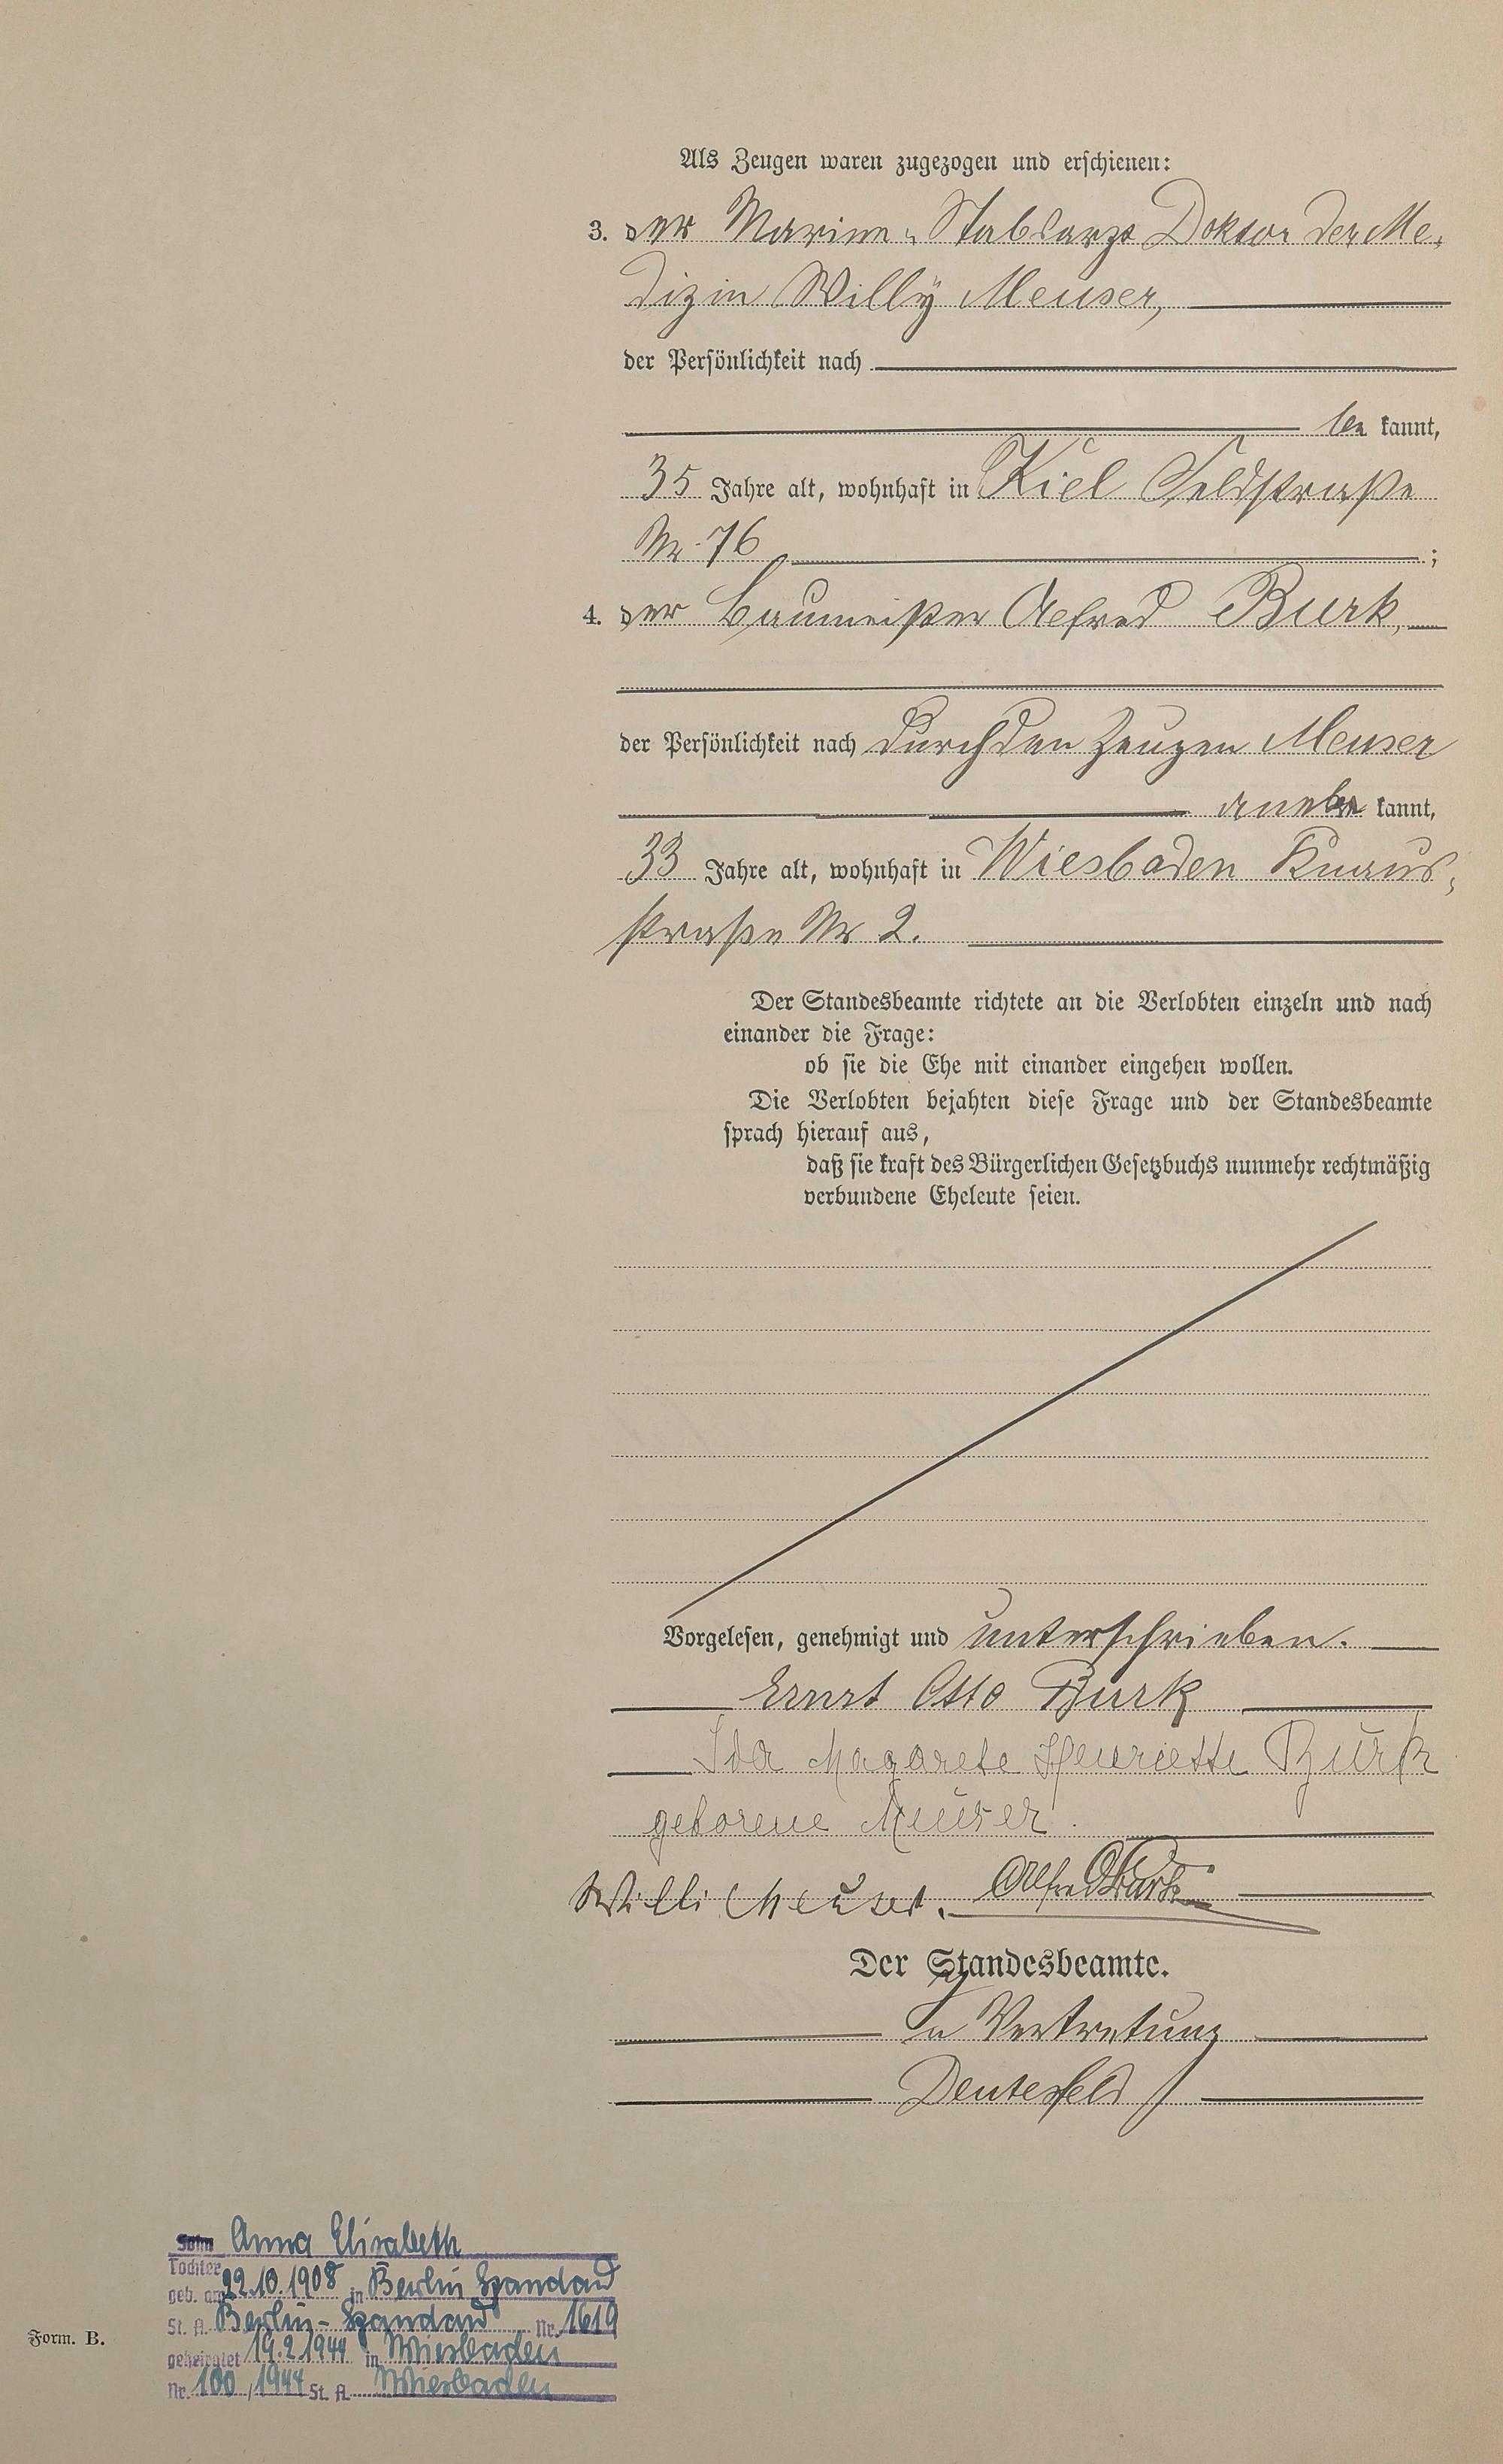 Als Zeugen waren zugezogen und erschienen:
3. der Marine-Stabsarzt Doktor der Me-
dizin Willy Meuser,
der Persönlichkeit nach
be kannt,
35 Jahre alt, wohnhaft in Kiel Feldstraße
Nr. 76 ;
4. der Baumeister Alfred Burk,
der Persönlichkeit nach durch den Zeugen Meuser
aner kannt,
33 Jahre alt, wohnhaft in Wiesbaden Knaus-
straße Nr 2.
Der Standesbeamte richtete an die Verlobten einzeln und nach
einander die Frage:
ob sie die Ehe mit einander eingehen wollen.
Die Verlobten bejahten diese Frage und der Standesbeamte
sprach hierauf aus,
daß sie kraft des Bürgerlichen Gesetzbuchs nunmehr rechtmäßig
verbundene Eheleute seien.
Vorgelesen, genehmigt und unterschrieben.
Ernst Otto Burk
Ida Magarete Henriette Burk
geborene Meuser.
Willi Meuser. Alfred Burk
Der Standesbeamte.
In Vertretung
Deutesfeld
Sohn Anna Elisabeth
Tochter
geb. am 22.10.1908 in Berlin Spandau
St. A. Berlin-Spandau Nr. 1619
geheiratet 19.2.1944 in Wiesbaden
Nr. 100 / 1944 St. A. Wiesbaden
Form. B.